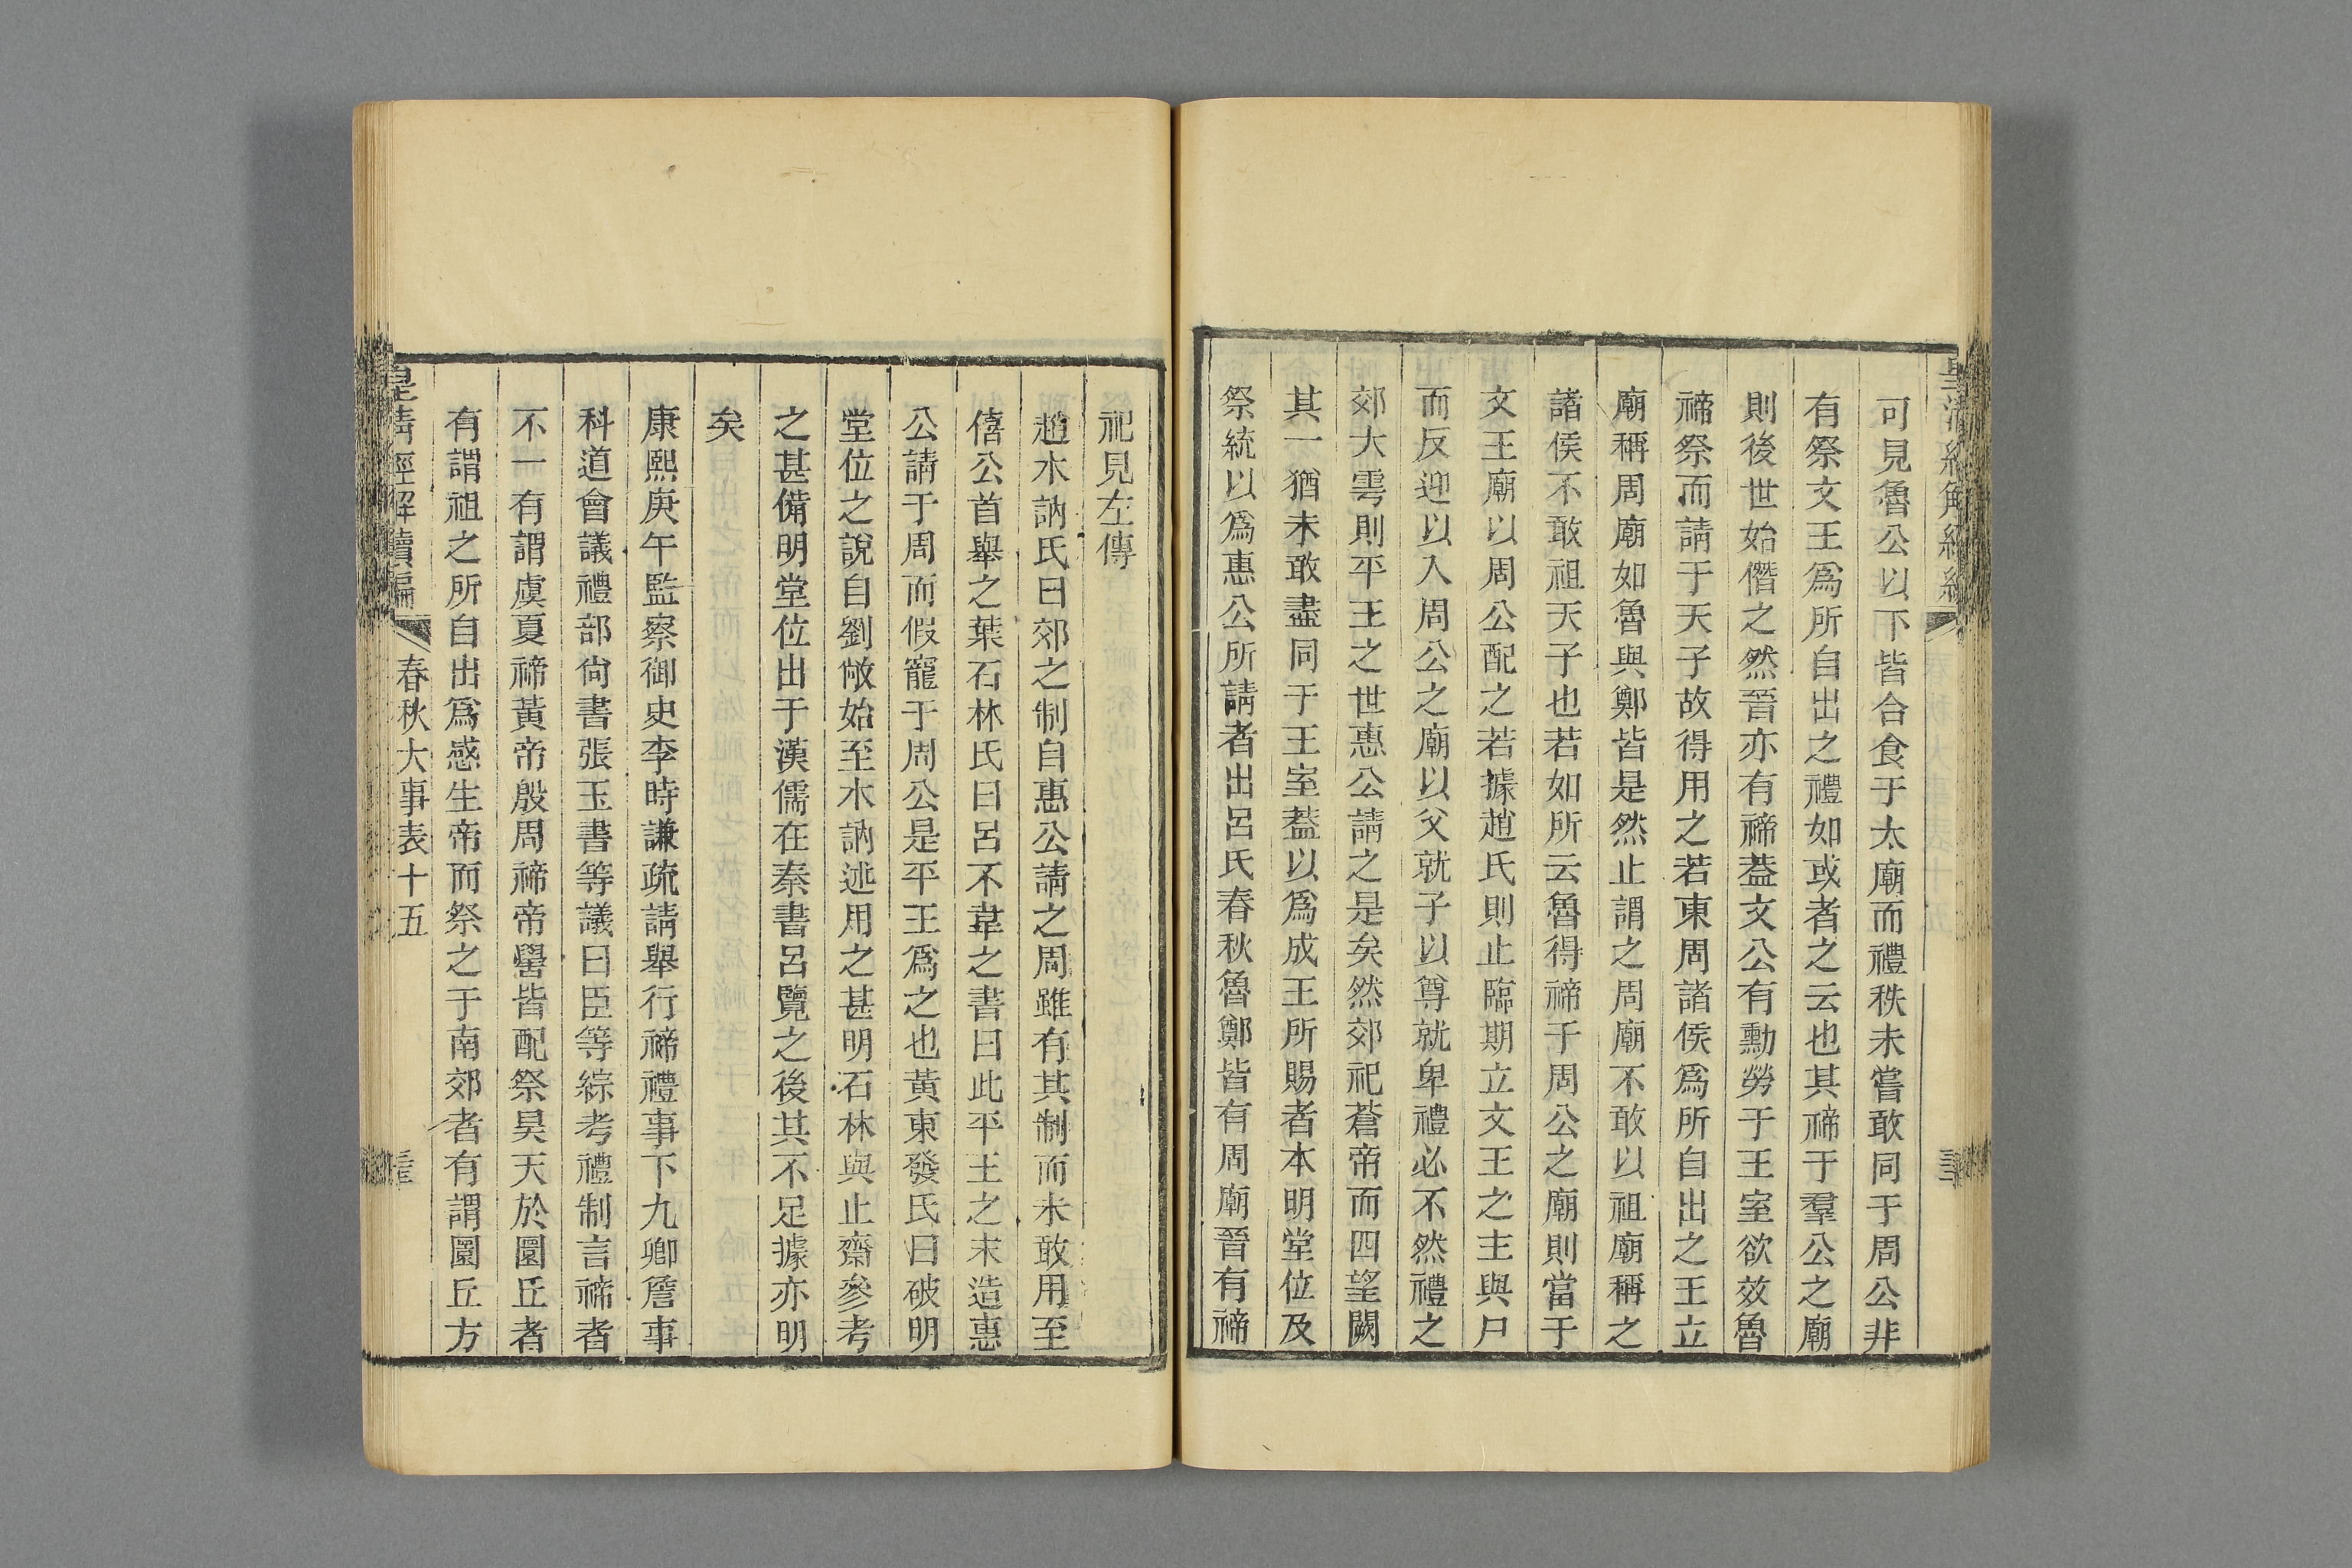 可見魯公以下皆合食于太廟而禮秩未嘗敢同于周公非
有祭文王爲所自出之禮如或者之云也其禘于羣公之廟
則後世始僭之然晉亦有禘蓋文公有勳勞于王室欲效魯
禘祭而請于天子故得用之若東周諸侯爲所自出之王立
廟稱周廟如魯與鄭皆是然止謂之周廟不敢以祖廟稱之
諸侯不敢祖天子也若如所云魯得禘于周公之廟則當于
文王廟以周公配之若據趙氏則止臨期立文王之主與尸
而反迎以入周公之廟以父就子以尊就卑禮必不然禮之
郊大雩則平王之世惠公請之是矣然郊祀蒼帝而四望闕
其一猶未敢盡同于王室葢以爲成王所賜者本明堂位及
祭統以爲惠公所請者出呂氏春秋魯鄭皆有周廟晉有禘
祀見左傳
趙木訥氏曰郊之制自惠公請之周雖有其制而未敢用至
僖公首舉之葉石林氏曰呂不韋之書曰此平王之末造惠
公請于周而假寵于周公是平王爲之也黃東發氏曰破明
堂位之說自劉敞始至木訥述用之甚明石林與止齋參考
之甚備明堂位出于漢儒在秦書呂覽之後其不足據亦明
矣
康熙庚午監察御史李時謙疏請舉行禘禮事下九卿詹事
科道會議禮部尙書張玉書等議曰臣等綜考禮制言禘者
不一有謂虞夏禘黃帝殷周禘帝嚳皆配祭昊天於圜丘者
有謂祖之所自出爲感生帝而祭之于南郊者有謂圜丘方
皇清經解續編
春秋大事表十五